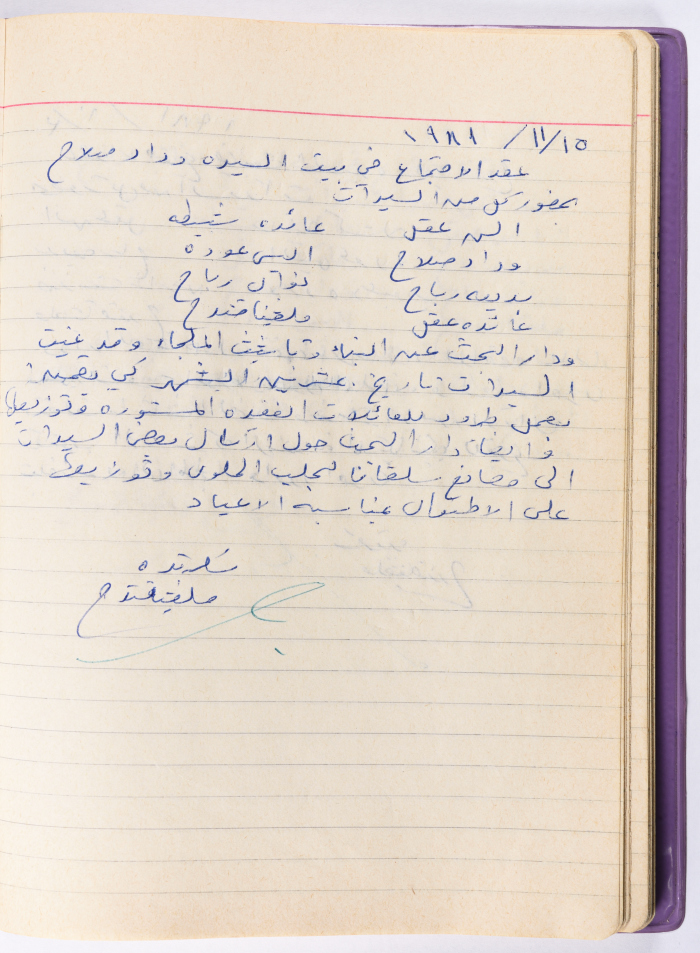 ١٥/ ١١/ ١٩٨١
عقد الاجتماع في بيت السيده وداد صلاح
بحضور كل من السيدات
السن عقل عائده شطيطه
وداد صلاح السي عوده
بديعه رباح نوال رباح
عائده عقل ملفينا قندح
ودار البحث عن البناء وتأثيث الملجاء وقد عينت
السيدات تاريخ عشرين الشهر كي
بعمل طرود للعائلات الفقيره المستوره وتوزيعها
وايضا دار البحث حول ارسال بعض السيدات
الى مصانع سلفانا لجلب الملوى وتوزيعها
على الاطفال بمناسبة الاعياد
سكرتيره
ملفينا قندح